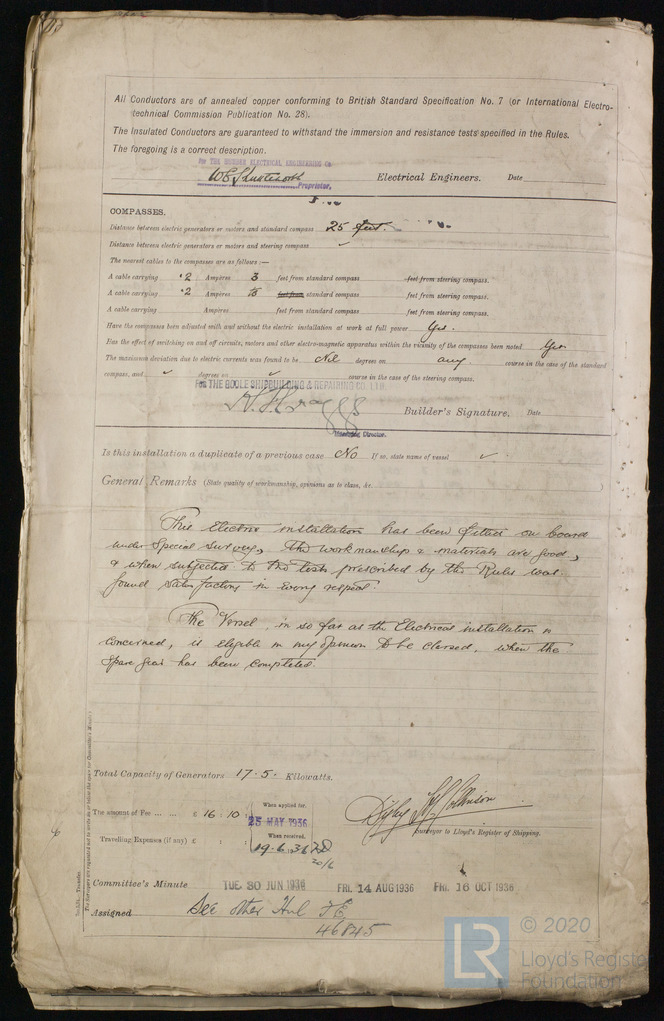 All Conductors are of annealed copper conforming to British Standard Specification No. 7 (or International Electro-
technical Commission Publication No. 28).
The Insulated Conductors are guaranteed to withstand the immersion and resistance tests specified in the Rules.
The foregoing is a correct description.
For THE HUMBER ELECTRICAL ENGINEERING Co
Electrical Engineers. Date
Proprietor.
COMPASSES.
Distance between electric generators or motors and standard compass 25 feet.
Distance between electric generators or motors and steering compass ✓
The nearest cables to the compasses are as follows:—
A cable carrying ·2 Ampères 3 feet from standard compass feet from steering compass.
A cable carrying ·2 Ampères feet from standard compass feet from steering compass.
A cable carrying Ampères feet from standard compass feet from steering compass.
Have the compasses been adjusted with and without the electric installation at work at full power Yes.
Has the effect of switching on and off circuits, motors and other electro-magnetic apparatus within the vicinity of the compasses been noted Yes
The maximum deviation due to electric currents was found to be Nil degrees on any course in the case of the standard
compass, and ✓ degrees on ✓ course in the case of the steering compass.
For THE GOOLE SHIPBUILDING & REPAIRING CO. LTD.
Builder's Signature. Date
Managing Director.
Is this installation a duplicate of a previous case No If so, state name of vessel ✓
General Remarks (State quality of workmanship, opinions as to class, &c.
This Electric installation has been fitted on board
under Special Survey, the workmanship & materials are good,
& when subjected to the tests prescribed by the Rules was
found satisfactory in every respect.
The Vessel, in so far as the Electrical installation is
concerned, is eligible in my opinion to be classed, when the
spare gear has been completed.
Total Capacity of Generators 17·5· Kilowatts.
The amount of Fee ... ... £ 16 : 10 : When applied for,
25 MAY 1936
When received,
Travelling Expenses (if any) £ : : 19.6.36
20/6
Surveyor to Lloyd's Register of Shipping.
Committee's Minute TUE 30 JUN 1936 FRI. 14 AUG 1936 FRI. 16 OCT 1936
Assigned See other
46845
© 2020
LR
Lloyd's Register
Foundation